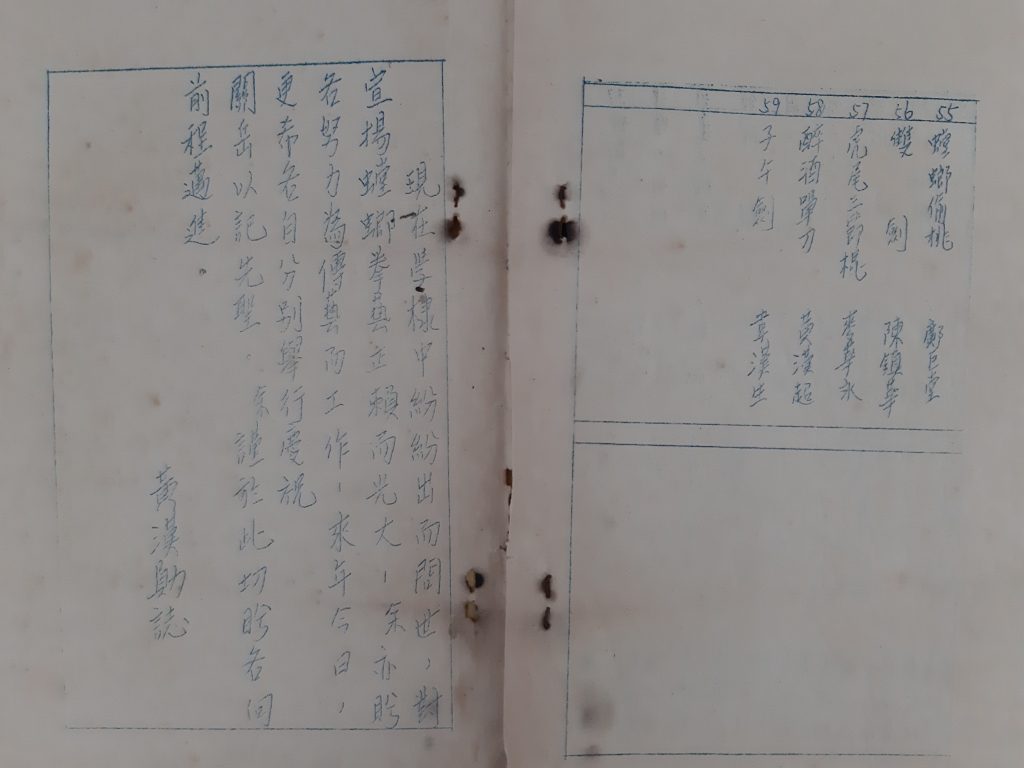 55 螳螂偷桃
56 雙劍 陳鎮華
57 虎尾三節棍
58 醉酒單刀 黃漢超
59 子午劍 韋漢生
現在學棣中紛紛出而問世,對
宣揚螳螂拳藝正賴而光大,余亦盼
各努力為傳藝而工作,來年今日,
更希各自分別舉行慶祝
關岳以記先聖.余謹於此切盼各向
前程邁進。
黃漢勛誌